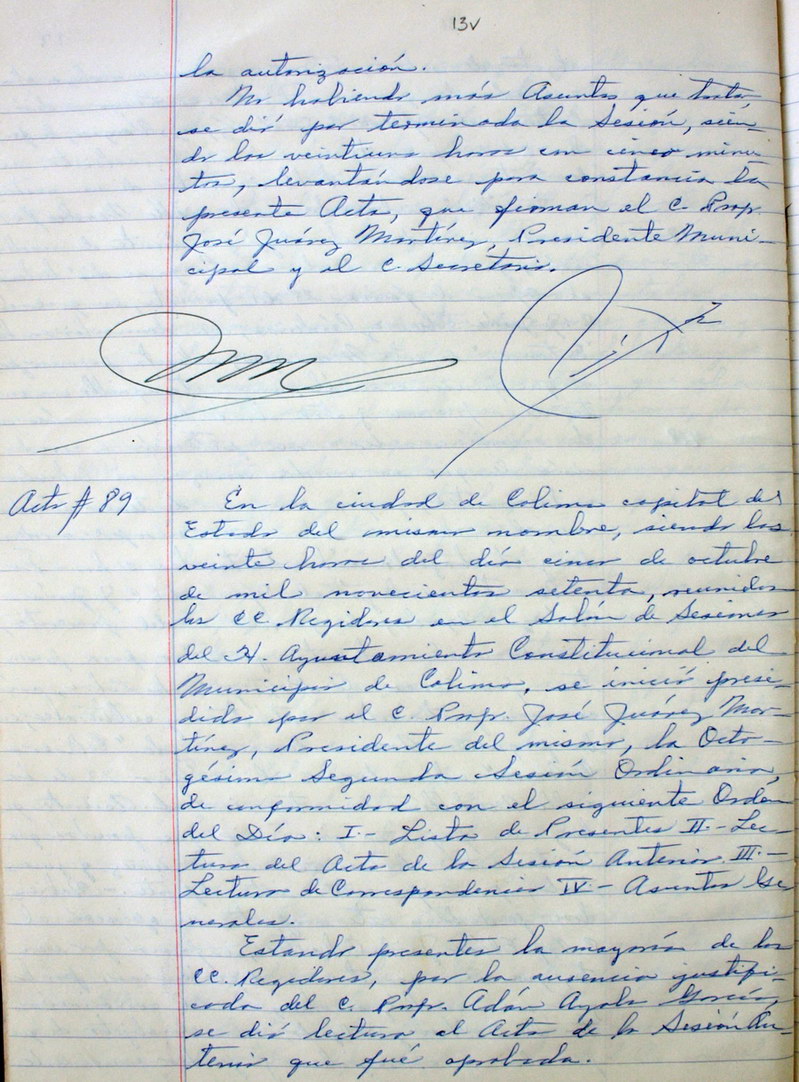 13v
la autorización.
No habiendo más Asuntos que trata
se dió por terminada la Sesión, sien-
do las veintiuna horas con cinco minu-
tos, levantándose para constancia la
presente Acta, que firman el C. Prof.
José Juárez Martínez, Presidente Muni-
cipal y el C. Secretario.
Acta # 89
En la ciudad de Colima capital del
Estado del mismo nombre, siendo las
veinte horas del día cinco de octubre
de mil novecientos setenta, reunidos
los CC. Regidores en el Salón de Sesiones
del H. Ayuntamiento Constitucional del
Municipio de Colima, se inició presi-
dida por el C. Prof. José Juárez Mar-
tínez, Presidente del mismo, la Octo-
gésima Segunda Sesión Ordinaria,
de conformidad con el siguiente Orden
del Día: I.- Lista de Presentes II.- Lec-
tura del Acta de la Sesión Anterior III.-
Lectura de Correspondencia IV.- Asuntos Ge
nerales.
Estando presentes la mayoría de los
CC. Regidores, por la ausencia justifi-
cada del C. Prof. Adán Ayala García,
se dió lectura al Acta de la Sesión An-
terior que fué aprobada.